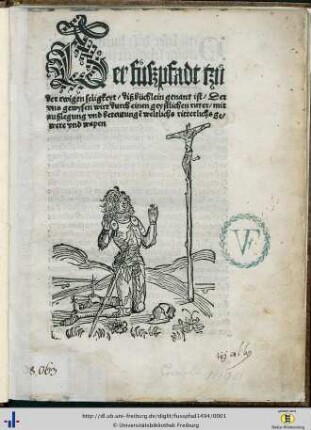 Der fußpfadt tzů
der ewigen seligkeyt / diß büchlein genant ist / Der
vns gewysen wirt durch einen geystlichen ritter / mit
außlegung vnd betewtung weltlichs ritterlichs ge/
were vnd wapen
VF
http://dl.ub.uni-freiburg.de/diglit/fusspfad1494/0001
© Universitätsbibliothek Freiburg